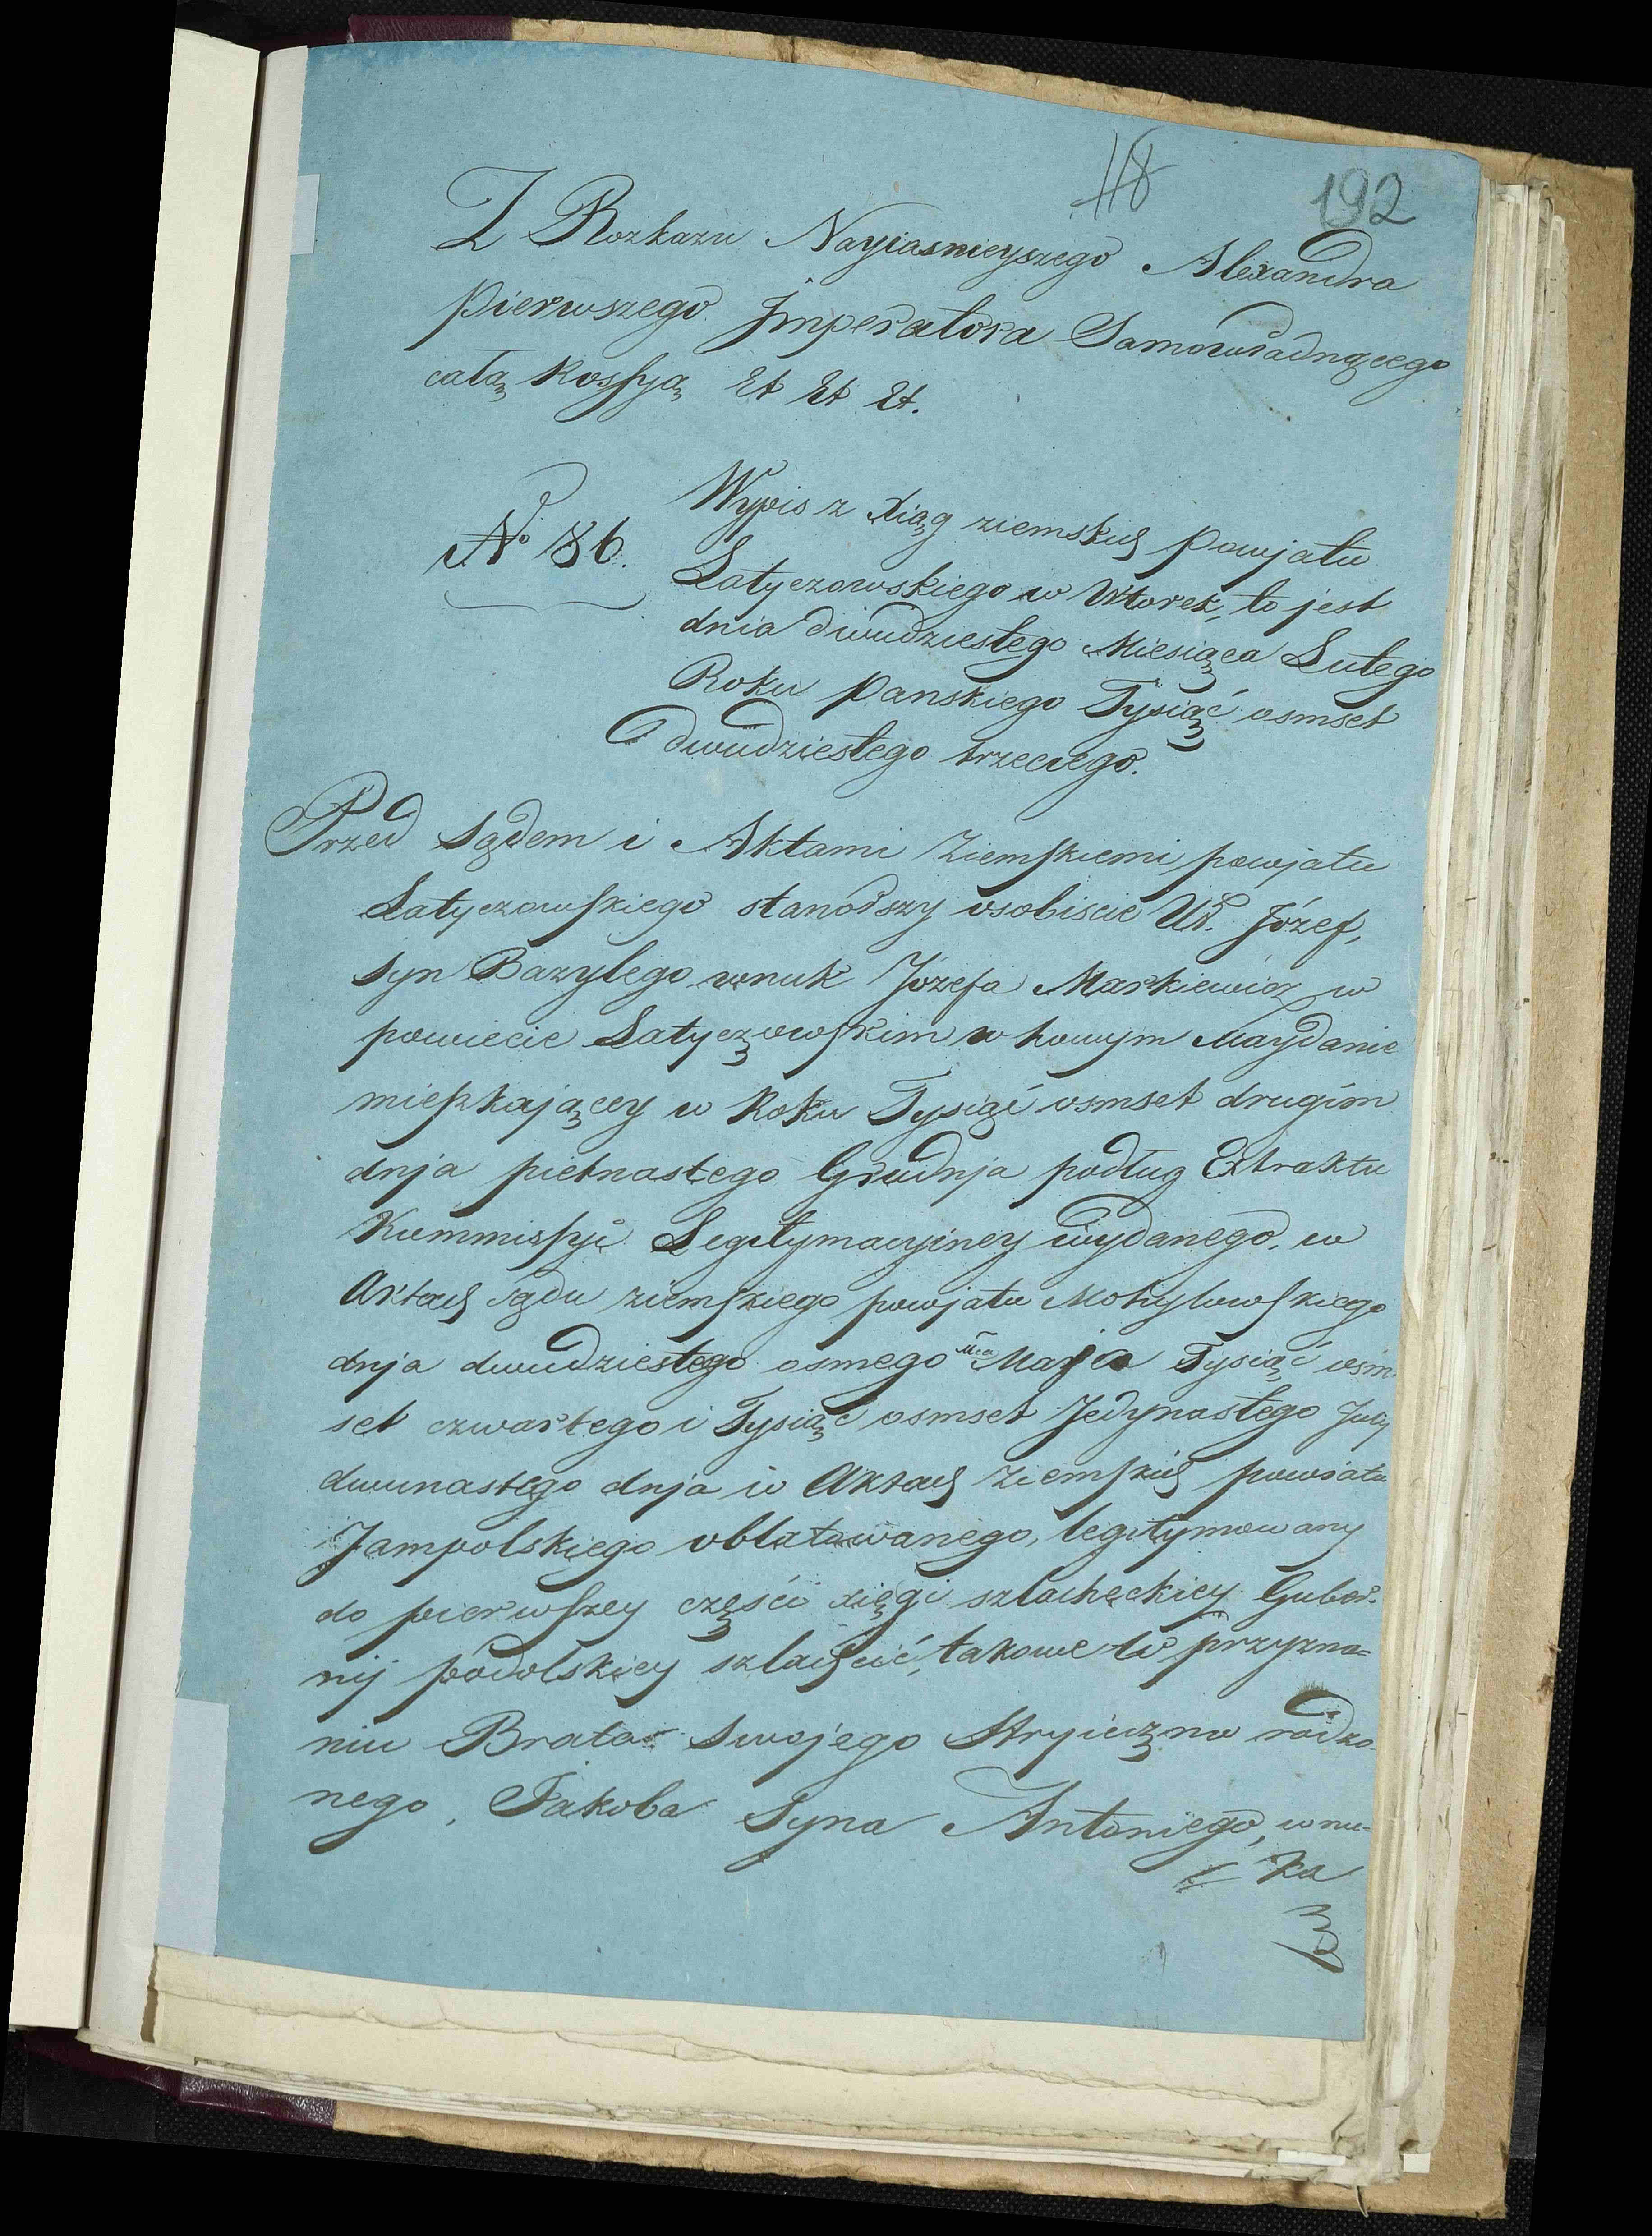 118 192
Z Rozkazu Nayiasnieyszego Alexandra
Pierwszego Jmperatora Samowładnącego
całą Rossyą Et Et Et.
Wypis z Xiąg ziemskich Powjatu
No 86.
Latyczowskiego w Wtorek, to jest
dnia dwudziestego Miesiąca Lutego
Roku Panskiego Tysiąć osmset
dwudziestego trzeciego.
Przed Sądem i Aktami Ziemskiemi powjatu
Latyczowskiego stanowszy osobiscie Ur. Józef,
syn Bazylego wnuk Józefa Markiewicz w
powiecie Latyczowskim w howym Maydanie
mieszkający w Roku Tysiąć osmset drugim
dnja pietnastego Grudnja podług Extraktu
Kummissyi Legitymacyiney wydanego, w
Aktach sądu ziemskiego powjatu Mohylowskiego
dnja dwudziestego osmego Mca Maja Tysiąć osm
set czwartego i Tysiąc osmset Jedynastego July
dwunastego dnja w Aktach Ziemskich powiatu
Jampolskiego oblatowanego, legitymowany
do pierwszey częsći xięgi szlacheckiey Guber-
nij podolskiey szlachcić, takowe to przyzna=
niu Brata swojego Stryieczno rodzo-
nego, Jakoba Syna Antoniego, wnu-
ka